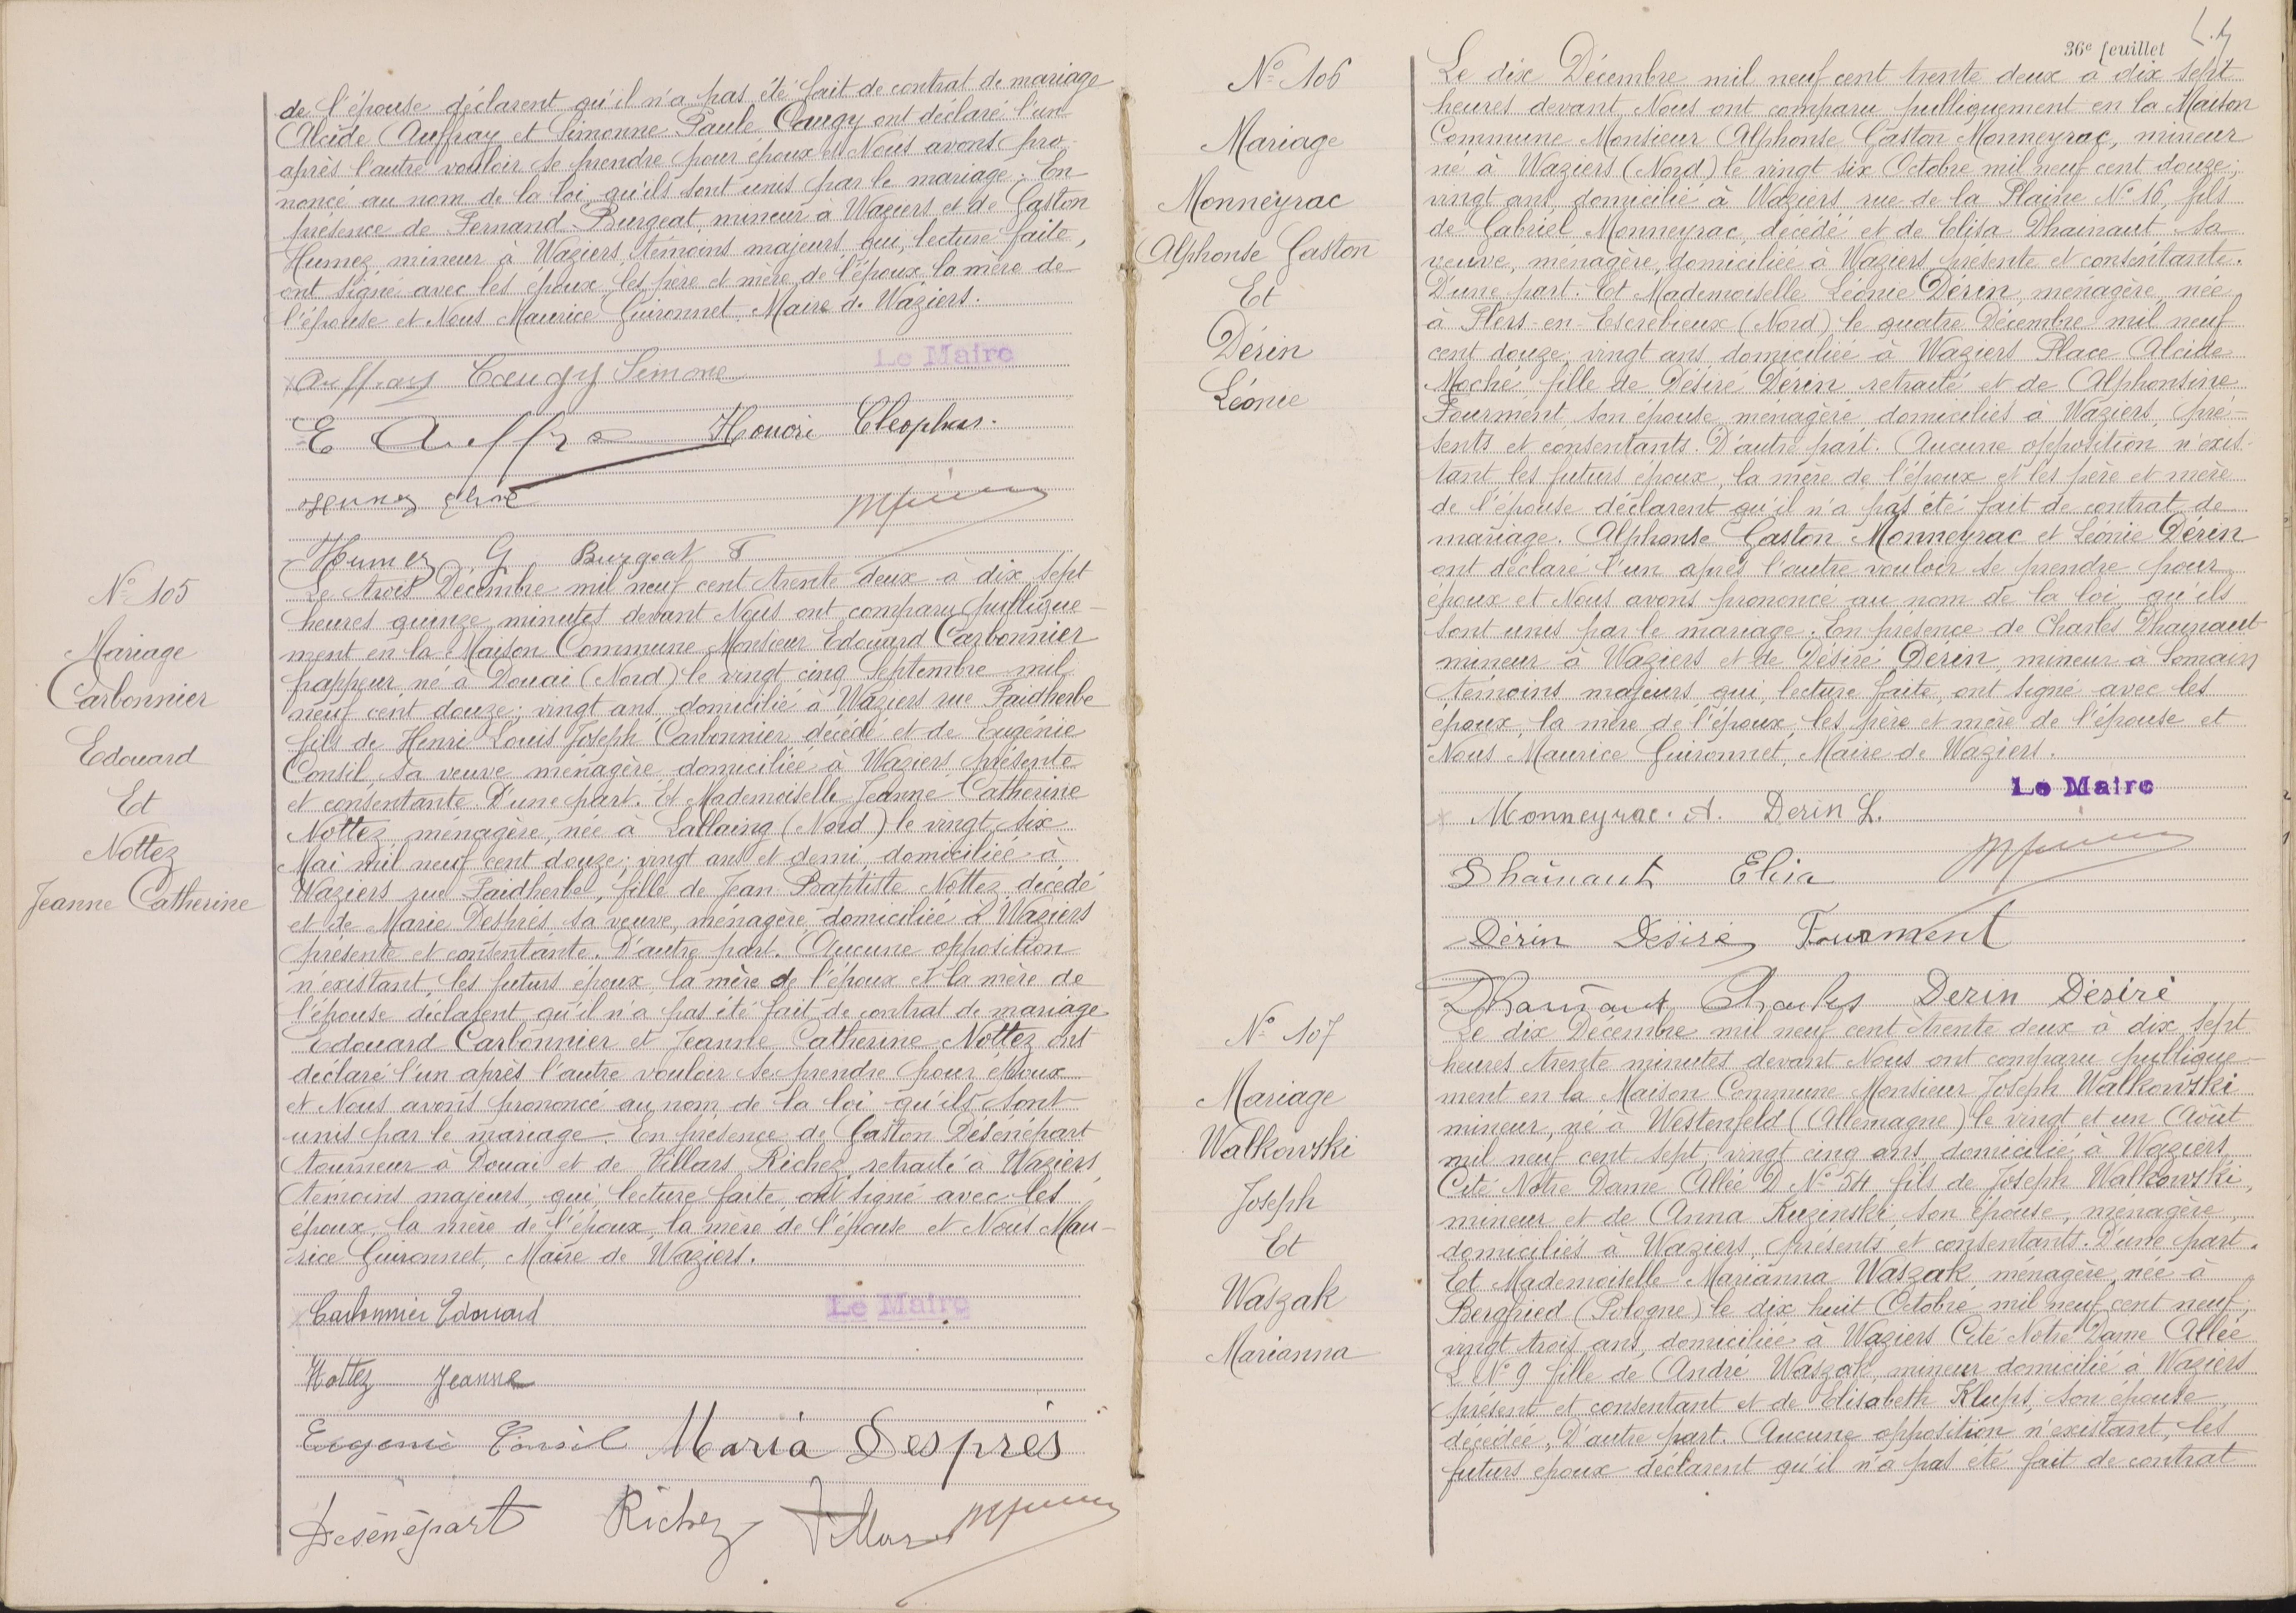 de l'épouse déclarent qu'il n'a pas été fait de contrat de mariage
Alcide Auffray et Simonne Paule Caugy ont déclaré l'un
après l'autre vouloir se prendre pour époux et Nous avons pro-
noncé au nom de la loi qu'ils sont unis par le mariage. En
présence de Fernand Burgeat, mineur à Waziers et de Gaston
Humez, mineur à Waziers, témoins majeurs, qui, lecture faite,
ont signé avec les époux, les père et mère de l'époux, la mère de
l'épouse et Nous Maurice Guironnet, Maire de Waziers.
Le Maire
Auffray Caugy Simone
E Auffra Honoré Cleophas.
Humez G Burgeat F
N° 105
Mariage
Carbonnier
Edouard
Et
Nottez
Jeanne Catherine
Le trois Décembre mil neuf cent trente deux à dix sept
heures quinze minutes devant Nous ont comparu publique-
ment en la Maison Commune Monsieur Edouard Carbonnier
frappeur, né à Douai (Nord) le vingt cinq Septembre mil
neuf cent douze; vingt ans, domicilié à Waziers rue Faidherbe
fils de Henri Louis Joseph Carbonnier, décédé et de Eugénie
Consil, sa veuve ménagère domiciliée à Waziers présente
et consentante. D'une part. Et Mademoiselle Jeanne Catherine
Nottez, ménagère, née à Lallaing (Nord) le vingt six
Mai mil neuf cent douze; vingt ans et demi, domiciliée à
Waziers rue Faidherbe, fille de Jean Baptiste Nottez, décédé
et de Marie Desprès sa veuve, ménagère domiciliée à Waziers
présente et consentante. D'autre part. Aucune opposition
n'existant, les futurs époux, la mère de l'époux et la mère de
l'épouse déclarent qu'il n'a pas été fait de contrat de mariage
Edouard Carbonnier et Jeanne Catherine Nottez ont
déclaré l'un après l'autre vouloir se prendre pour époux
et Nous avons prononcé au nom de la loi qu'ils sont
unis par le mariage. En présence de Gaston Desenépart
tourneur à Douai et de Villars Richez, retraité à Waziers,
témoins majeurs, qui, lecture faite, ont signé avec les
époux, la mère de l'époux, la mère de l'épouse et Nous Mau-
rice Guironnet, Maire de Waziers.
Le Maire
Carbonnier Edouard
Nottez Jeanne
Eugenie Consil Maria Desprès
Desénépart Richez Villars
36e feuillet
N° 106
Mariage
Monneyrac
Alphonse Gaston
Et
Dérin
Léonie
Le dix Décembre mil neuf cent trente deux à dix sept
heures devant Nous ont comparu publiquement en la Maison
Commune Monsieur Alphonse Gaston Monneyrac, mineur
né à Waziers (Nord) le vingt six Octobre mil neuf cent douze;
vingt ans, domicilié à Waziers, rue de la Plaine N° 16, fils
de Gabriel Monneyrac, décédé et de Elisa Dhainaut sa
veuve, ménagère, domiciliée à Waziers présente et consentante.
D'une part. Et Mademoiselle Léonie Dérin, ménagère, née
à Flers-en-Escrebieux (Nord) le quatre Décembre mil neuf
cent douze; vingt ans, domiciliée à Waziers Place Alcide
Moché, fille de Désiré Dérin, retraité et de Alphonsine
Fourment, son épouse, ménagère, domiciliés à Waziers, pré-
sents et consentants. D'autre part. Aucune opposition n'exis-
tant les futurs époux, la mère de l'époux et les père et mère
de l'épouse déclarent qu'il n'a pas été fait de contrat de
mariage. Alphonse Gaston Monneyrac et Léonie Dérin
ont déclaré l'un après l'autre vouloir se prendre pour
époux et Nous avons prononcé au nom de la loi qu'ils
sont unis par le mariage. En présence de Charles Dhainaut
mineur à Waziers et de Désiré Dérin, mineur à Somain
témoins majeurs, qui, lecture faite, ont signé avec les
époux, la mère de l'époux, les père et mère de l'épouse et
Nous Maurice Guironnet, Maire de Waziers.
Le Maire
Monneyrac. A. Derin L.
Dhainaut Elisa
Dérin Désiré Fourment
Dhainaut Charles Derin Désiré
N° 107
Mariage
Walkowski
Joseph
Et
Waszak
Marianna
Le dix Décembre mil neuf cent trente deux à dix sept
heures trente minutes devant Nous ont comparu publique-
ment en la Maison Commune Monsieur Joseph Walkowski
mineur, né à Westenfeld (Allemagne) le vingt et un Août
mil neuf cent sept; vingt cinq ans, domicilié à Waziers
Cité Notre Dame Allée D N° 54, fils de Joseph Walkowski,
mineur et de Anna Kuzinski, son épouse, ménagère,
domiciliés à Waziers, présents et consentants. D'une part.
Et Mademoiselle Marianna Waszak ménagère, née à
Bergfried (Pologne) le dix huit Octobre mil neuf cent neuf;
vingt trois ans, domiciliée à Waziers Cité Notre Dame Allée
L N° 9 fille de André Waszak, mineur domicilié à Waziers
présent et consentant et de Elisabeth Klups, son épouse
décédée. D'autre part. Aucune opposition n'existant, les
futurs époux déclarent qu'il n'a pas été fait de contrat